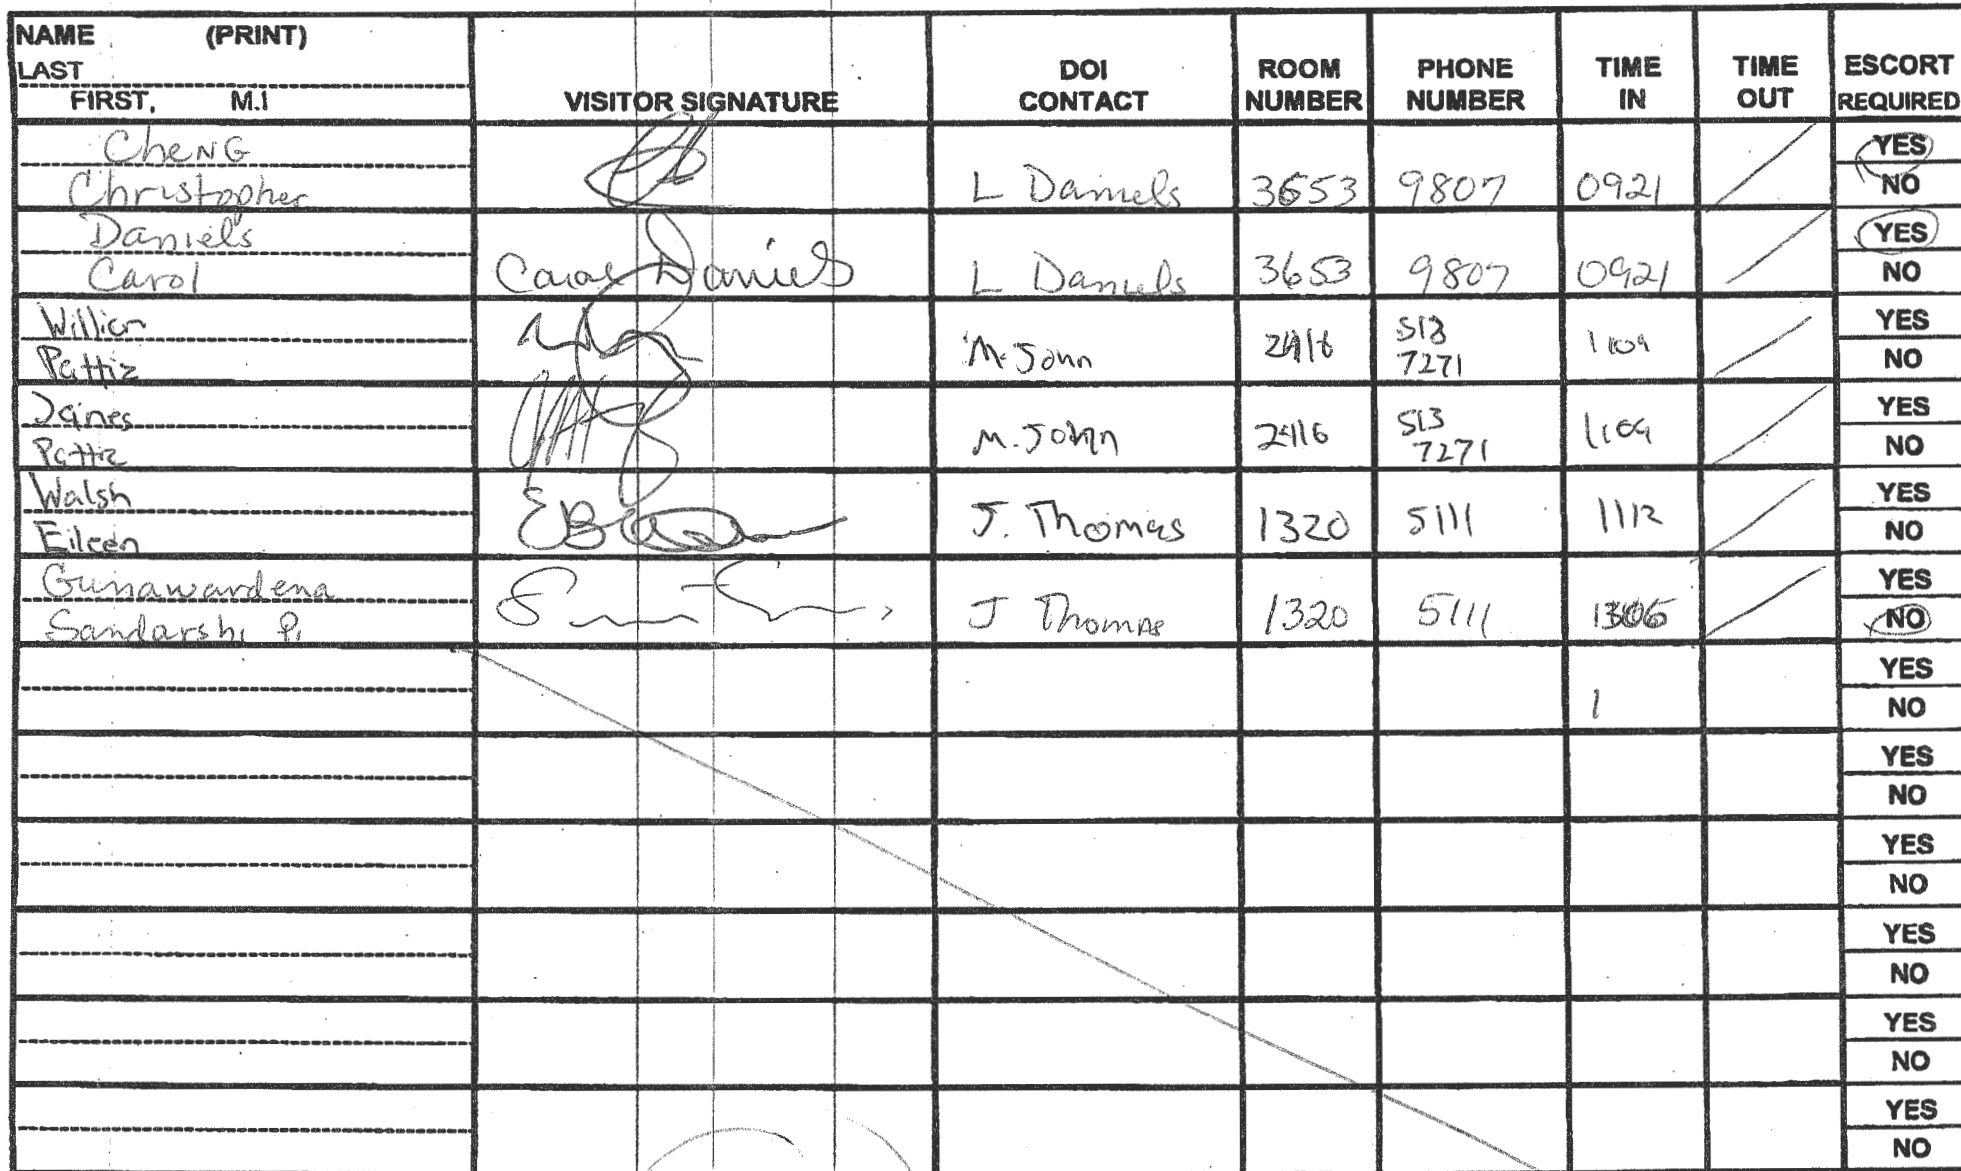 NAME (PRINT)
LAST
FIRST, M.I
VISITOR SIGNATURE
DOI CONTACT
ROOM NUMBER
PHONE NUMBER
TIME IN
TIME OUT
ESCORT REQUIRED
CheNG
Christopher
L Daniels 3653 9807 0921
YES
NO
Daniels
Carol
Carol Daniels L Daniels 3653 9807 0921
YES
NO
William
Pattiz
M. John 2416 513 7271 1109
YES
NO
James
Pattiz
M. John 2416 513 7271 1109
YES
NO
Walsh
Eileen
J. Thomas 1320 5111 1112
YES
NO
Gunawardena
Sandarshi P.
J Thomas 1320 5111
YES
NO
YES
1 NO
YES
NO
YES
NO
YES
NO
YES
NO
YES
NO